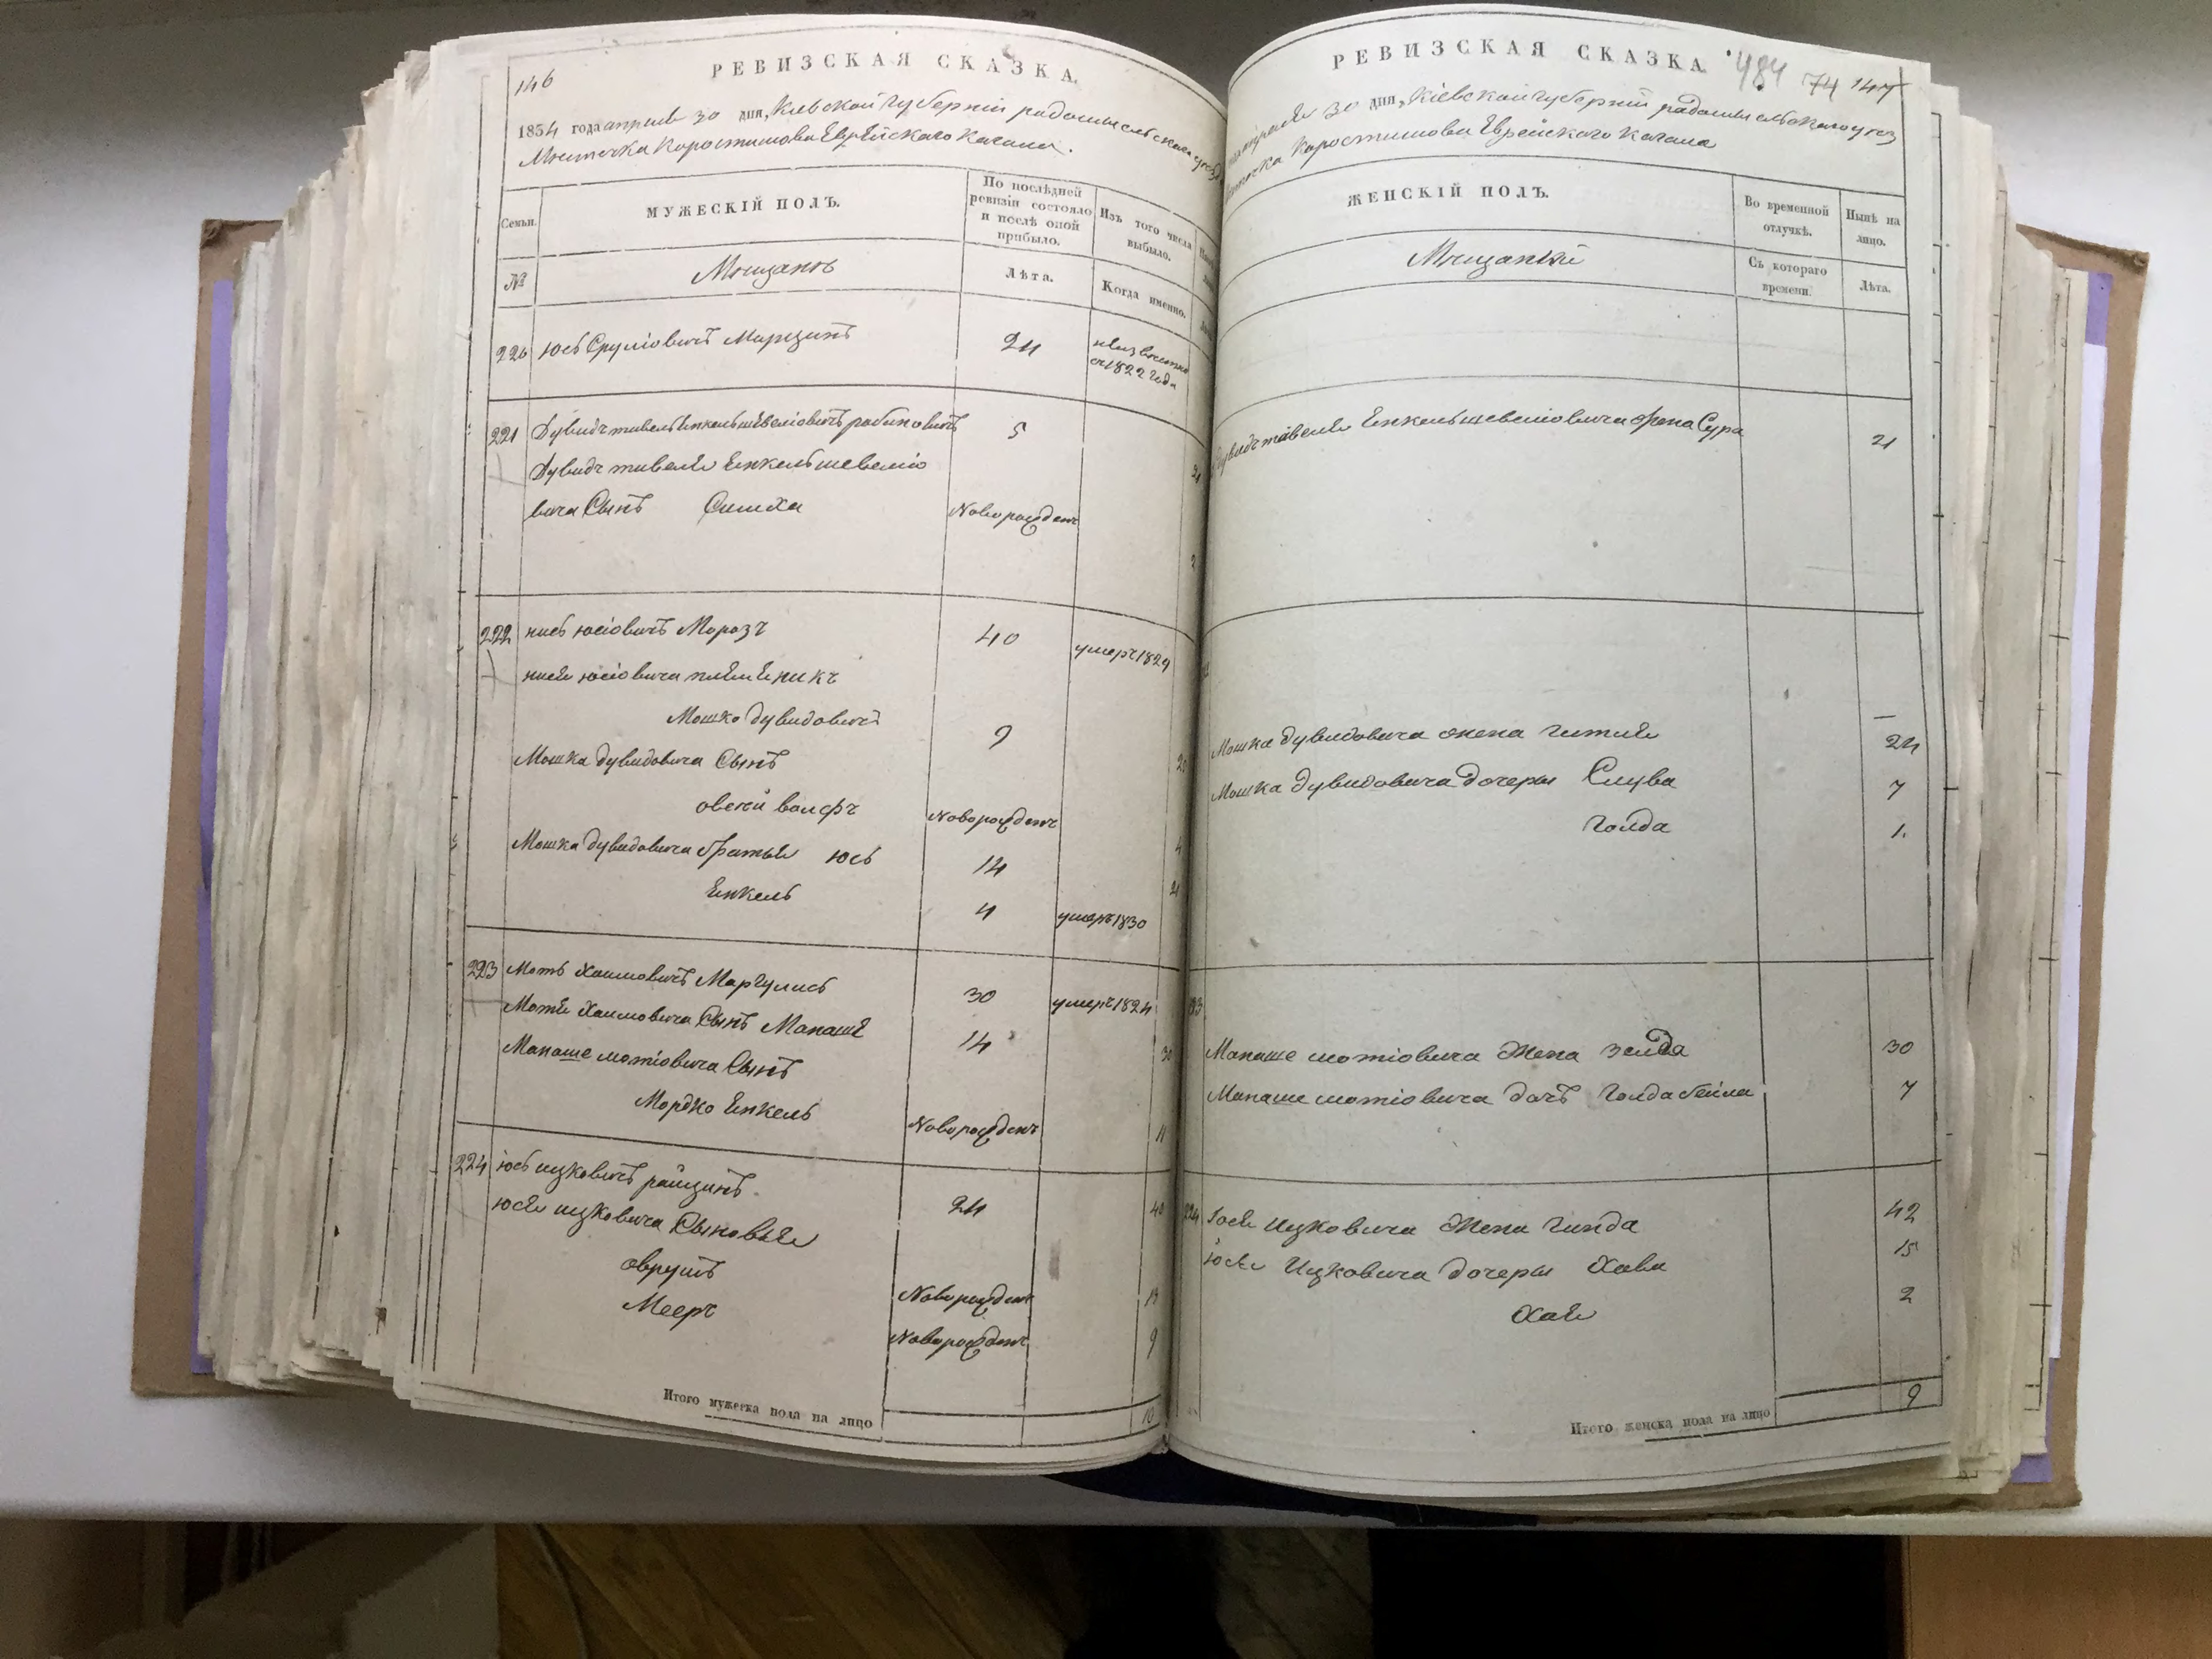 146
РЕВИЗСКАЯ СКАЗКА.
1834 года апреля 30 дня, Киевской губернии радомысльского
Местечка Коростишова Еврейского Кагала.
Семьи.
МУЖЕСКІЙ ПОЛЪ.
По послѣдней ревизіи состояло и послѣ оной прибыло.
Изъ того числа выбыло.
№
Мещанъ
Лѣта.
Когда именно.
220 Юсь Сруліовичъ 24 1822 года
221 Дувидъ тивель Енкель шевеліовичъ рабиновичъ 5
Дувидъ тивеля Енкель шевеліо
вича Сынъ Симха Новорожденъ
2
222 нисъ юсіовичъ Морозъ 40 умеръ 1829
нися юсіовича племеникъ
Мошко дувидовичъ 9
Мошка дувидовича Сынъ
овсей волфъ Новорожденъ 4
Мошка дувидовича братья юсь 14
Енкель 4 умеръ 1830
223 Моть Хаимовичъ Маргулисъ 30 умеръ 1824
Мотя Хаимовича Сынъ Манаше 14 30
Манаше мотіовича Сынъ
Мордко Енкель Новорожденъ 11
224 юсь ицковичъ 24 40
юся ицковича Сыновья
аврумъ Новорожденъ
Мееръ Новорожденъ 9
Итого мужеска пола на лицо 10
РЕВИЗСКАЯ СКАЗКА
484 74 147
апреля 30 дня, Кіевской губерніи радомысльского уез
Коростишова Еврейского Кагала
ЖЕНСКІЙ ПОЛЪ.
Во временной отлучкѣ.
Нынѣ на лицо.
Мещанъ
Съ котораго времени.
Лѣта.
Дувидъ тавеля Енкель шевеліовича жена Сура 21
Мошка дувидовича жена 24
Мошка дувидовича дочеры Слува 7
голда 1.
Манаше мотіовича Жена Зелда 30
Манаше мотіовича дочъ голда бейла 7
224 Юся Ицковича Жена гинда 42
юся Ицковича дочеры Хава 15
Хая 2
Итого женска пола на лицо 9